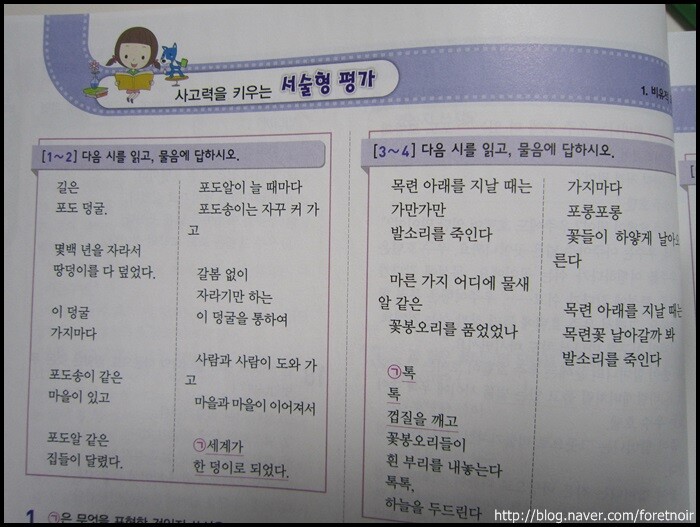 사고력을 키우는 서술형 평가
1. 비유적
[1~2] 다음 시를 읽고, 물음에 답하시오.
길은
포도 덩굴.
몇백 년을 자라서
땅덩이를 다 덮었다.
이 덩굴
가지마다
포도송이 같은
마을이 있고
포도알 같은
집들이 달렸다.
포도알이 늘 때마다
포도송이는 자꾸 커 가
고
갈봄 없이
자라기만 하는
이 덩굴을 통하여
사람과 사람이 도와 가
고
마을과 마을이 이어져서
㉠세계가
한 덩이로 되었다.
1 ㉠은 무엇을 표현한 것인지
[3~4] 다음 시를 읽고, 물음에 답하시오.
목련 아래를 지날 때는
가만가만
발소리를 죽인다
마른 가지 어디에 물새
알 같은
꽃봉오리를 품었었나
㉠톡
톡
껍질을 깨고
꽃봉오리들이
흰 부리를 내놓는다
톡톡,
하늘을 두드린다
가지마다
포롱포롱
꽃들이 하얗게 날아오
른다
목련 아래를 지날 때는
목련꽃 날아갈까 봐
발소리를 죽인다
http://blog.naver.com/foretnoir